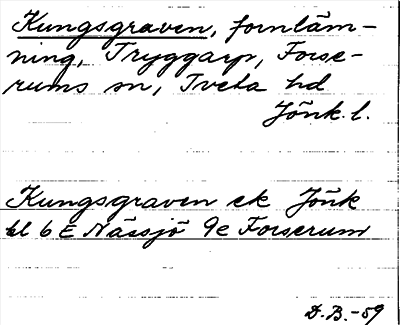 Kungsgraven, fornläm-
ning, Tryggarp, Forse-
rums sn, Tveta hd
Jönk. l.
Kungsgraven ek Jönk
bl 6 E Nässjö 9e Forserum
D.B.-59